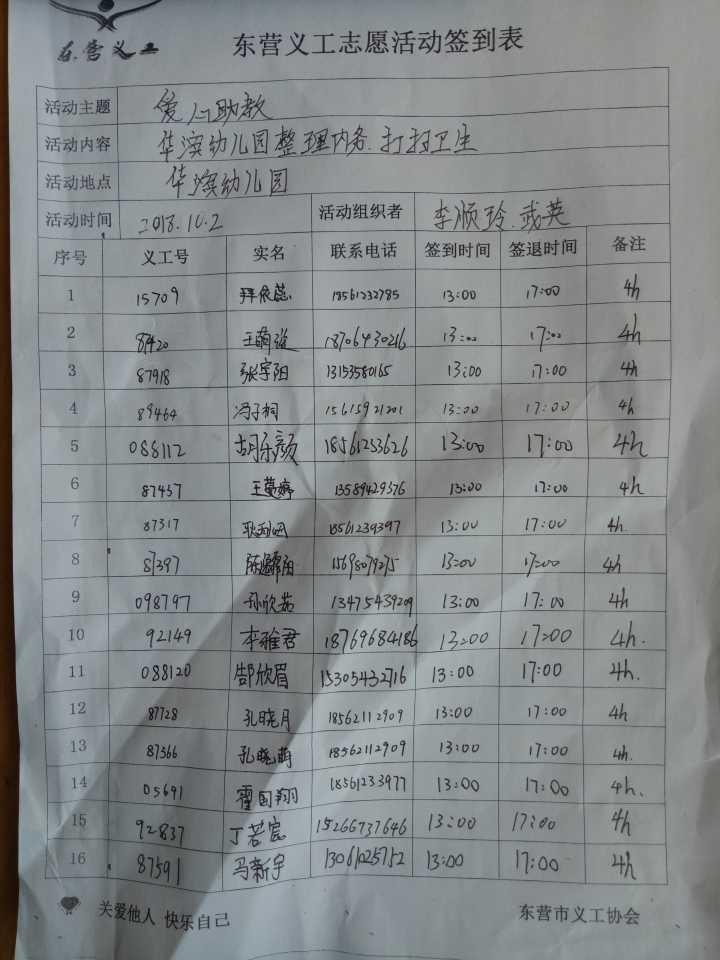 东营义工
东营义工志愿活动签到表
活动主题 爱心助教
活动内容 华滨幼儿园整理内务.打扫卫生
活动地点 华滨幼儿园
活动时间 2018.10.2 活动组织者 李顺玲.武英
序号 义工号 实名 联系电话 签到时间 签退时间 备注
1 15709 18561232785 13:00 17:00 4h
2 8420 王萌 18706430216 13:00 17:00 4h
3 87918 张宇阳 13153580165 13:00 17:00 4h
4 89464 冯子桐 15615921201 13:00 17:00 4h
5 088112 胡乐颜 18561253626 13:00 17:00 4h
6 87437 王蔓婷 13589429376 13:00 17:00 4h
7 87317 18561239397 13:00 17:00 4h.
8 87397 15698079275 13:00 17:00 4h
9 098797 孙欣茹 13475439209 13:00 17:00 4h
10 92149 李雅君 18769684186 13:00 17:00 4h.
11 088120 郜欣眉 15305432716 13:00 17:00 4h.
12 87728 孔晓月 18562112909 13:00 17:00 4h
13 87366 孔晓萌 18562112909 13:00 17:00 4h.
14 05691 霍国翔 18561233977 13:00 17:00 4h.
15 92837 丁若宸 15266737646 13:00 17:00 4h
16 87591 马新宇 13061025752 13:00 17:00 4h
关爱他人 快乐自己 东营市义工协会